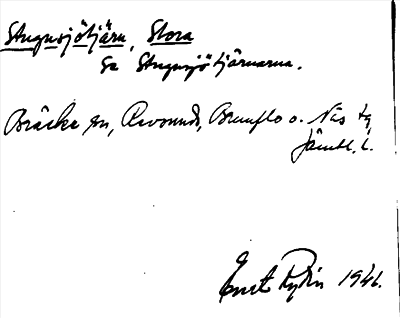 Stugusjötjärn, Stora
Se Stugusjötjärnarna.
Bräcke sn, Revsunds, Brunflo o. Näs tg
Jämtl. l.
Ernst Rydin 1941.